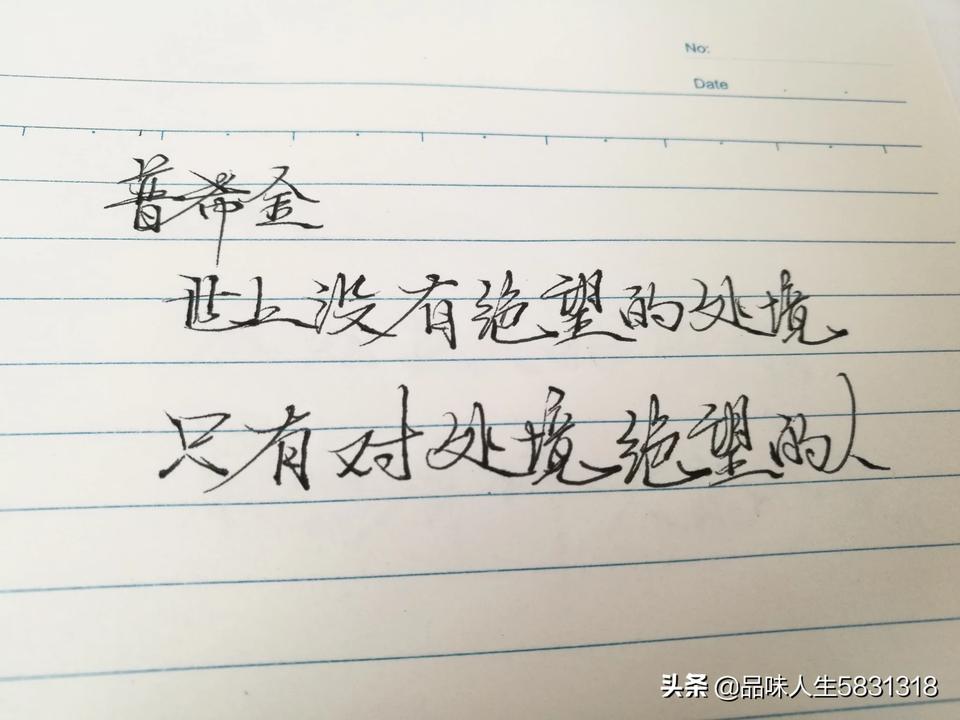 No:
Date
普希金
世上没有绝望的处境
只有对处境绝望的人
头条 @品味人生5831318